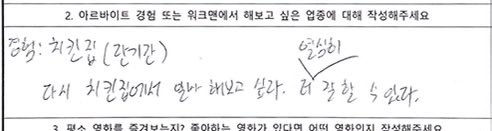 2. 아르바이트 경험 또는 워크맨에서 해보고 싶은 업종에 대해 작성해주세요
경험: 치킨집 (단기간)
열심히
다시 치킨집에서 알바 해보고 싶다. 더 잘 할 수 있다.
3. 평소 영화를 즐겨보는지? 좋아하는 영화가 있다면 어떤 영화인지 작성해주세요